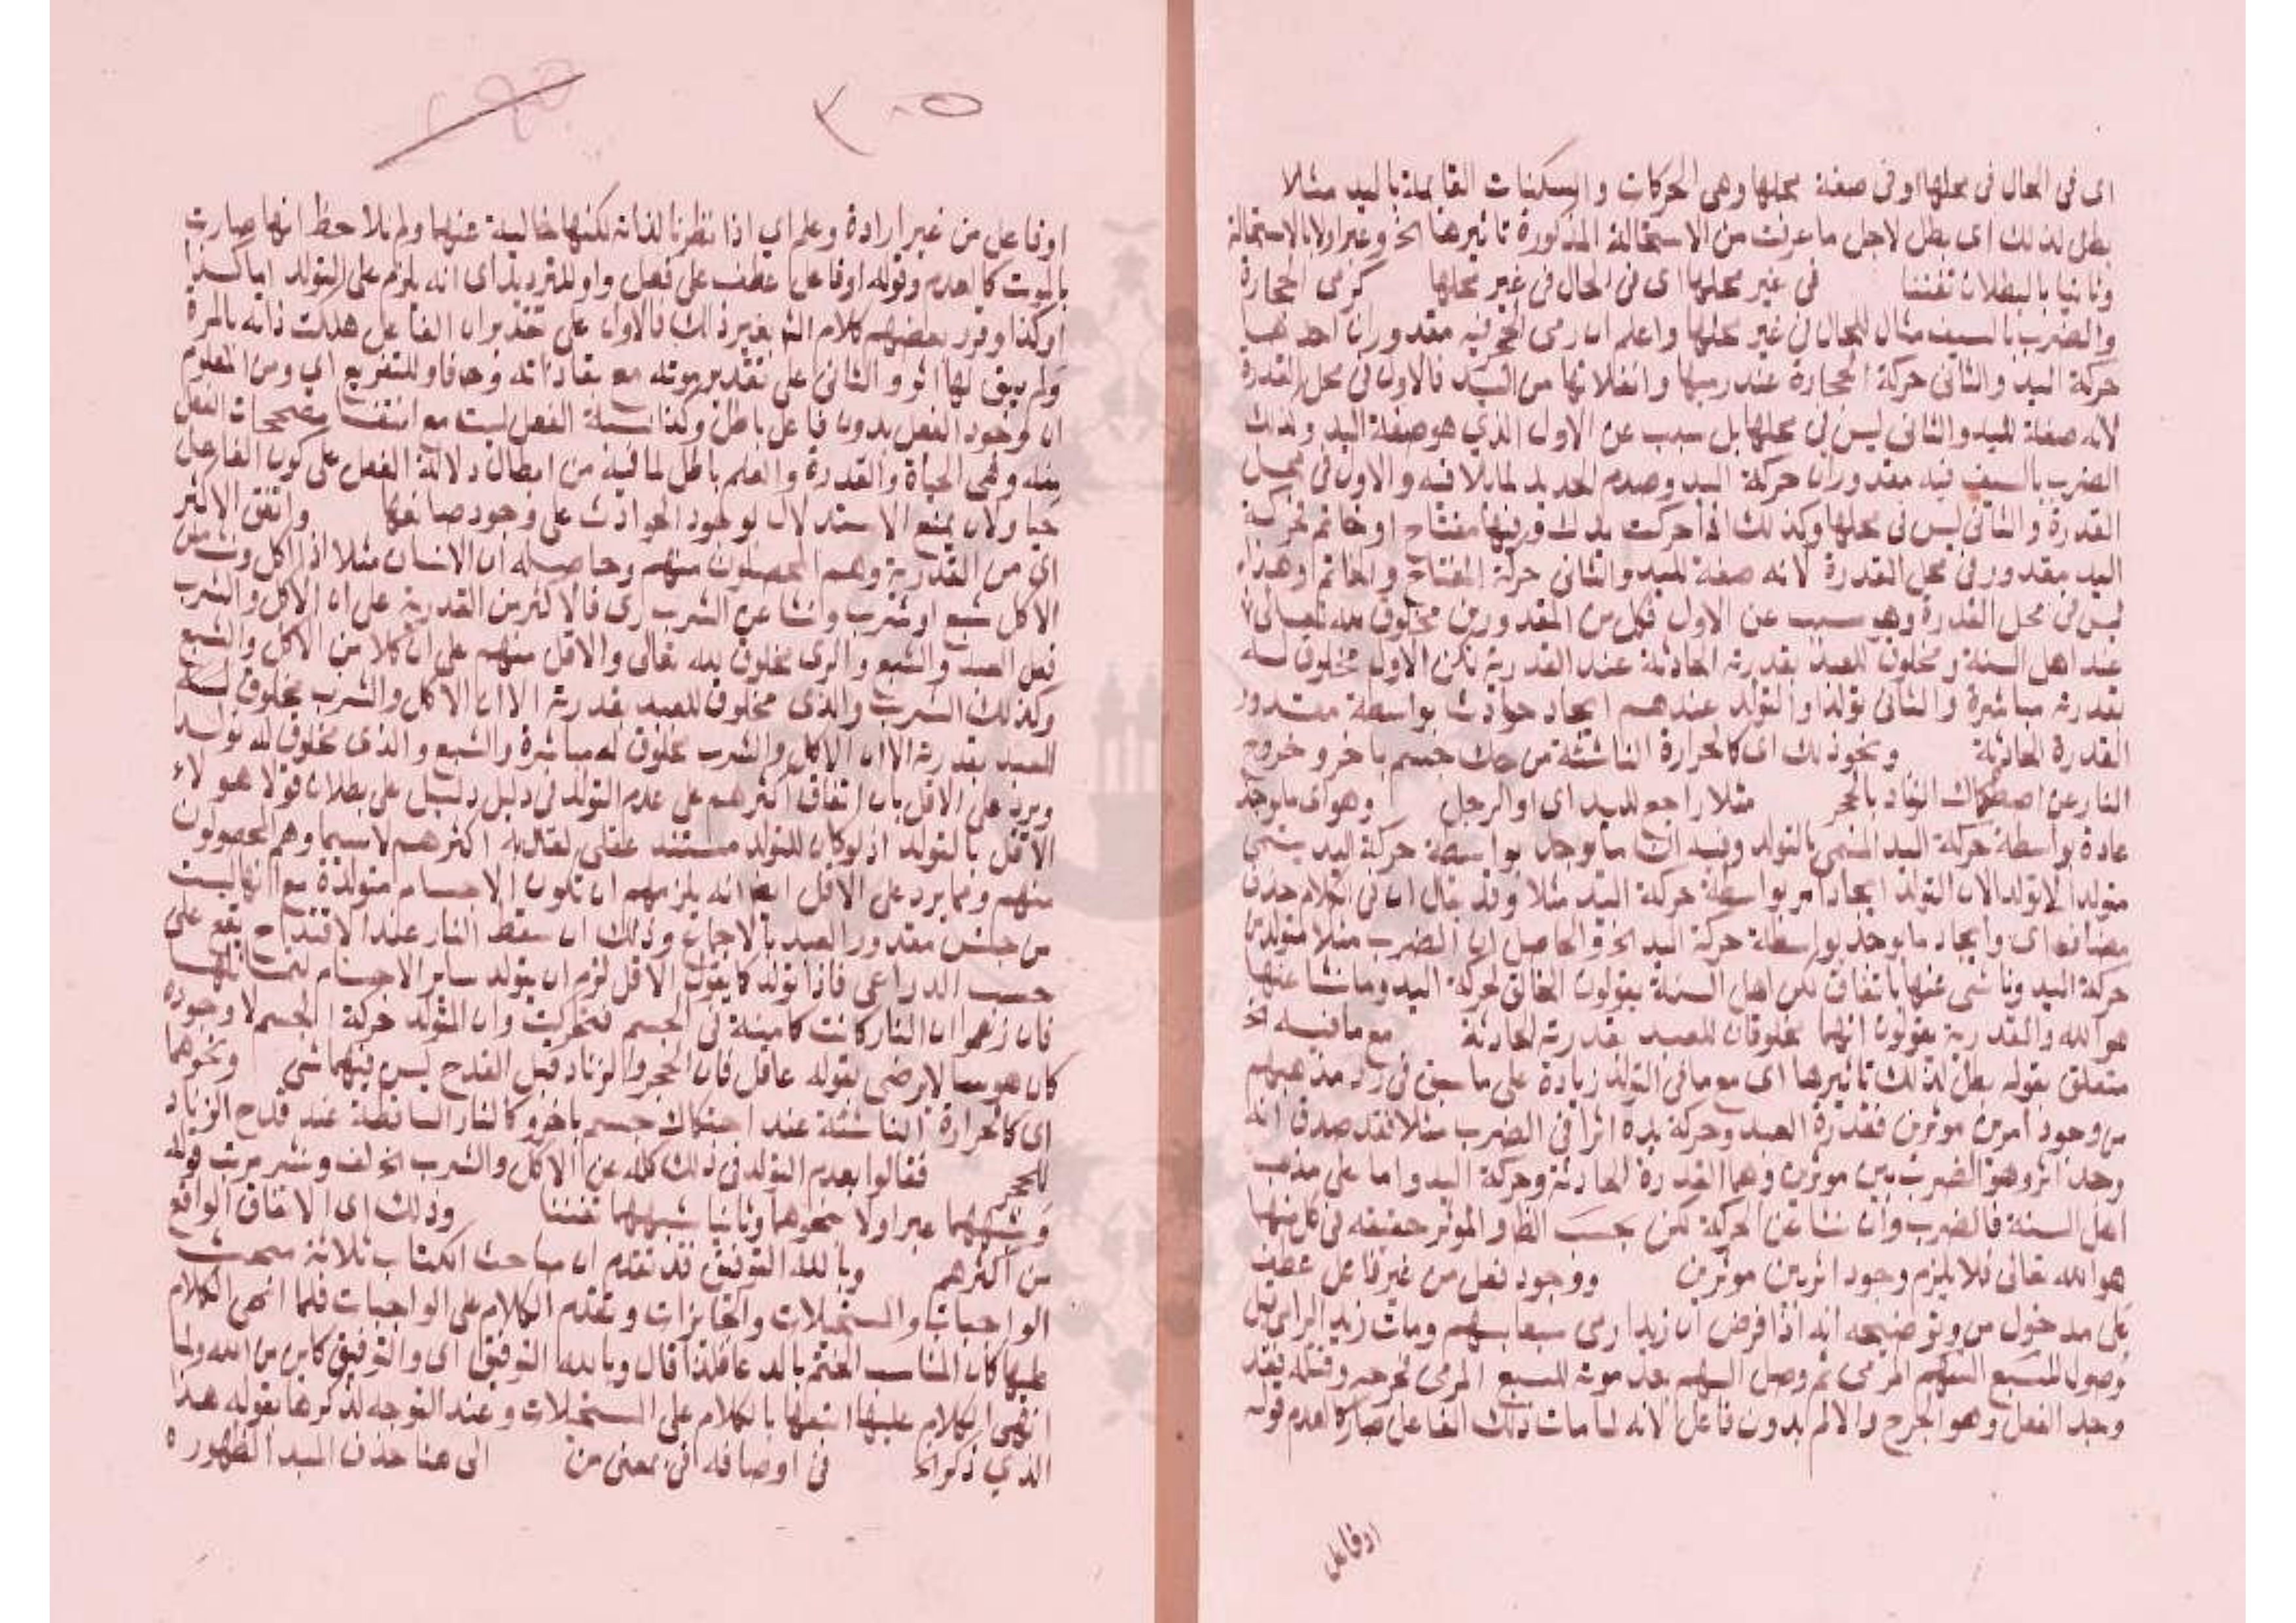 اى فى الحال فى محلها او فى صفة محلها وهى الحركات والسكنات القايمة باليد مثلا
بطل لذلك اى بطل لاجل ما عرفت من الاستحالة المذكورة تاثيرها الخ وعبر اولا بالاستحالة
وثانيا بالبطلان تفننا فى غير محلها اى فى الحال فى غير محلها كرمى الحجارة
والضرب بالسيف مثال للحال فى غير محلها واعلم ان رمى الحجر فيه مقدوران احدهما
حركة اليد والثانى حركة الحجارة عند رميها وانفلاتها من اليد فالاول فى محل القدرة
لانه صفة لليد والثانى ليس فى محلها بل سبب عن الاول الذي هو صفة اليد وكذلك
الضرب بالسيف فيه مقدوران حركة اليد وصدم الحديد لما يلاقيه والاول فى محل
القدرة والثانى ليس فى محلها وكذلك اذا حركت يدك وفيها مفتاح او خاتم فحركة
اليد مقدور فى محل القدرة لانه صفة لليد والثانى حركة المفتاح والخاتم وهذا
ليس فى محل القدرة وهو سبب عن الاول فكل من المقدورين مخلوق لله تعالى
عند اهل السنة ومخلوق للعبد بقدرته الحادثة عند القدرية لكن الاول مخلوق له
بقدرته مباشرة والثانى تولدا والتولد عندهم ايجاد حوادث بواسطة مقدور
القدرة الحادثة ونحو ذلك اى كالحرارة الناشئة من حك جسم باخر وخروج
النار عن اصطكاك الزناد بالحجر مثلا راجع لليد اى او الرجل وهو اى ما يوجد
عادة بواسطة حركة اليد المسمى بالتولد وفيه ان ما يوجد بواسطة حركة اليد يسمى
متولدا لا تولدا لان التولد ايجاد امر بواسطة حركة اليد مثلا وقد يقال ان فى الكلام حذف
مضاف اى وايجاد ما يوجد بواسطة حركة اليد الخ والحاصل ان الضرب مثلا متولد من
حركة اليد وناشى عنها باتفاق لكن اهل السنة يقولون الخالق لحركة اليد وما نشا عنها
هو الله والقدرية يقولون انهما مخلوقان للعبد بقدرته الحادثة مع ما فيه الخ
متعلق بقوله بطل لذلك تاثيرها اى مع ما فى التولد زيادة على ما سبق فى رد مذهبهم
من وجود امرين موثرين فقدرة العبد وحركة يده اثرا فى الضرب مثلا فقد صدق انه
وجد اثر وهو الضرب بين موثرين وهما القدرة الحادثة وحركة اليد واما على مذهب
اهل السنة فالضرب وان نشا عن الحركة لكن بحسب الظا والموثر حقيقه فى كل منهما
هو الله تعالى فلا يلزم وجود اثر بين موثرين ووجود فعل من غير فاعل عطف
على مدخول من وتوضيحه انه اذا فرض ان زيدا رمى سبعا بسهم ومات زيد الرامى قبل
وصول السبع السهم المرمى ثم وصل السهم بعد موته للسبع المرمى فجرحه وقتله فقد
وجد الفعل وهو الجرح والالم بدون فاعل لانه لما مات ذلك الفاعل صار كالعدم قوله
او فاعل
٣٠٥
او فاعل من غير ارادة وعلم اي اذا نظرنا لذاته لكنها خالية عنهما ولم نلاحظ انها صارت
بالموت كالعدم وقوله او فاعل عطف على فعل واو للترديد اى انه يلزم على التولد اما كذا
او كذا وقرر بعضهم كلام الش بغير ذلك فالاول على تقدير ان الفاعل هلكت ذاته بالمرة
ولم يبق لها اثر والثانى على تقدير موته مع بقا ذاته وحافاو للتفريع اي ومن المعلوم
ان وجود الفعل بدون فاعل باطل وكذا نسبة الفعل لميت مع انتفا مصححات الفعل
منه وهى الحياة والقدرة والعلم باطل لما فيه من ابطال دلالة الفعل على كون الفاعل
حيا ولان يمنع الاستدلال بوجود الحوادث على وجود صانعها واتفق الاكثر
اى من القدرية وهم المحصلون منهم وحاصله ان الانسان مثلا اذا اكل ونشا من
الاكل شبع او شرب ونشا عن الشرب رى فالاكثر من القدرية على ان الاكل والشرب
فعل العبد والشبع والرى مخلوق لله تعالى والاقل منهم على ان كلا من الاكل والشبع
وكذلك الشرب والذى مخلوق للعبد بقدرته الا ان الاكل والشرب مخلوق لله
للعبد بقدرته الا ان الاكل والشرب مخلوق له مباشرة والشبع والذى مخلوق له تولد
ويرد على الاقل بان اتفاق اكثرهم على عدم التولد فى دليل دليل على بطلان قولا هولاء
الاقل بالتولد اذ لو كان للتولد مستند عقلى لقال به اكثرهم لا سيما وهم المحصلون
منهم ومما يرد على الاقل ايضا انه يلزمهم ان تكون الاجسام متولدة مع انها ليست
من جنس مقدور العبد بالاجماع وذلك ان سقط النار عند الاقتداح يقع على
حسب الدواعى فاذا تولد كما يقول الاقل لزم ان يتولد ساير الاجسام لتماثلها
فان زعموا ان النار كانت كامنة فى الجسم فتحركت وان المتولد حركة الجسم لا وجوده
كان هوسا لا يرضى بقوله عاقل فان الحجر والزناد قبل القدح ليس فيهما شى ونحوهما
اى كالحرارة الناشئة عند احتكاك جسم باخر وكالنار الساقطة عند قدح الزناد
للحجر فقالوا بعدم التولد فى ذلك كله عن الاكل والشرب الخ لف ونشر مرتب قوله
وشبههما عبر اولا بنحوها وثانيا بشبههما تفننا وذلك اى الاتفاق الواقع
من اكثرهم وبالله التوفيق قد تقدم ان مباحث الكتاب ثلاثة مبحث
الواجبات والمستحيلات والجايزات وتقدم الكلام على الواجبات فلما انهى الكلام
عليها كان المناسب الختم بالدعا فلذا قال وبالله التوفيق اى والتوفيق كاين من الله ولما
انهى الكلام عليها اتبعها بالكلام على المستحيلات وعند التوجه لذكرها بقوله هذا
الذي ذكر الخ فى اوصافه اى بمعنى من الى هنا حذف المبدا لظهوره